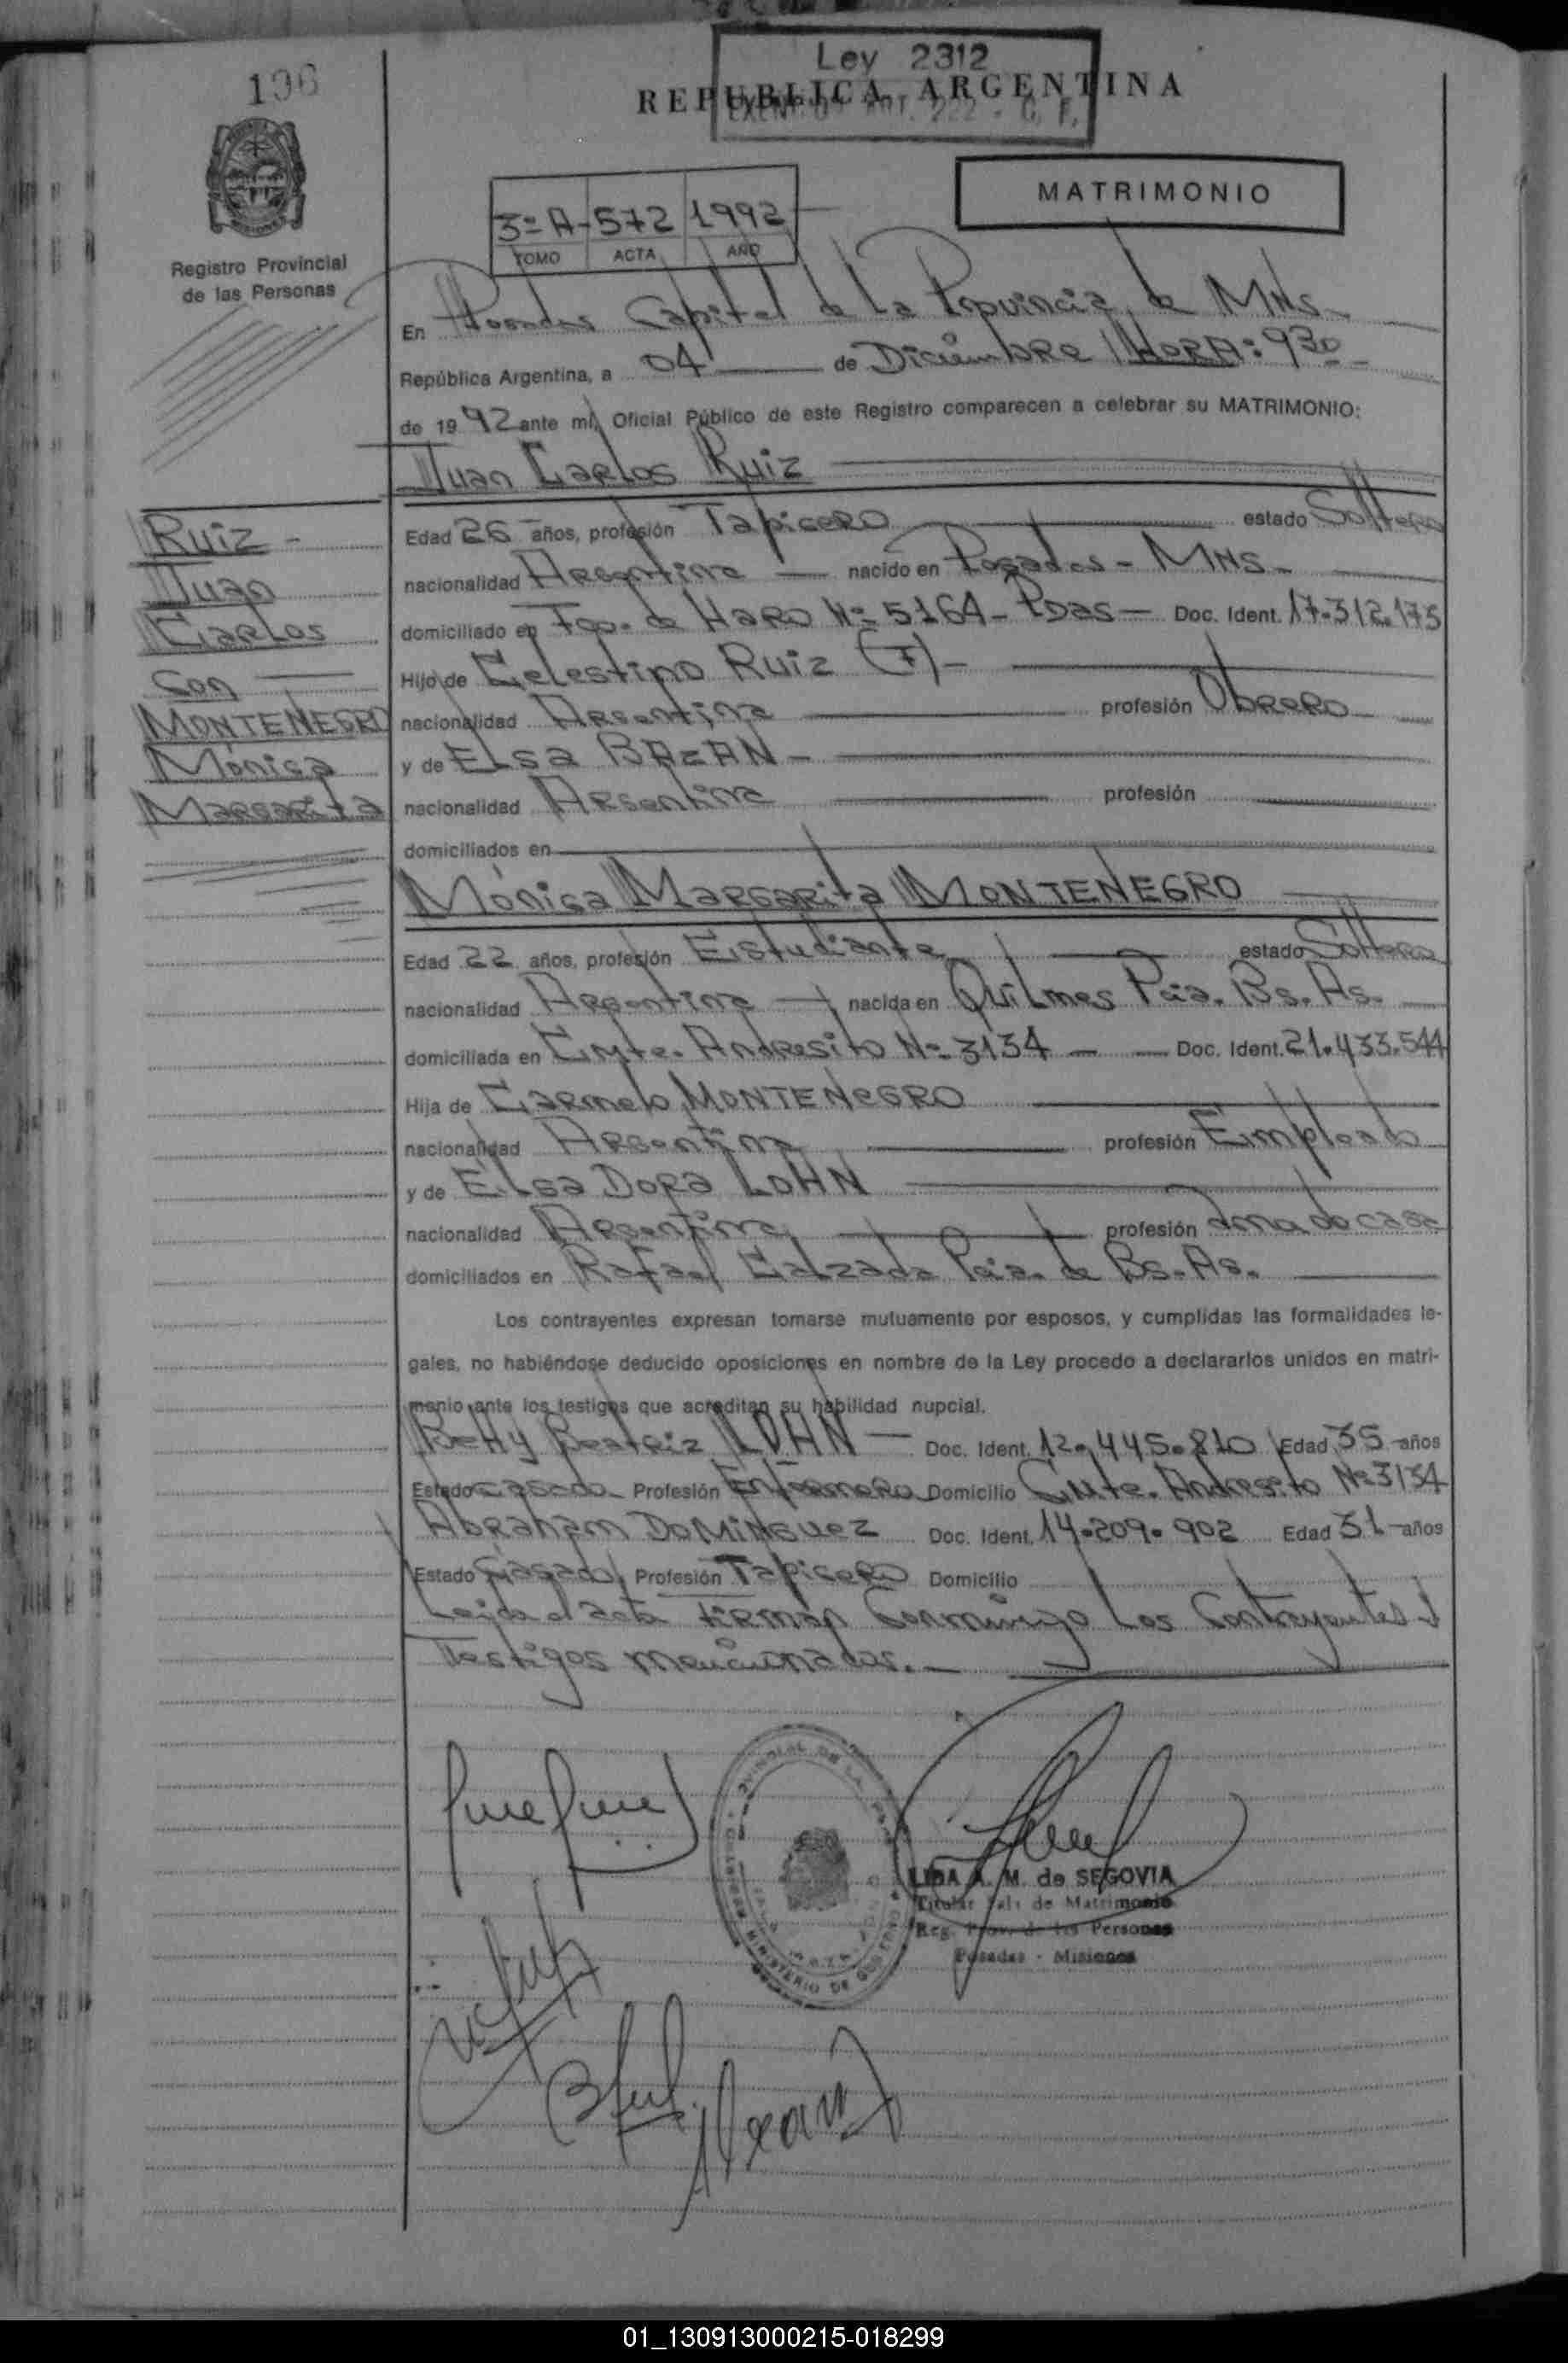 196
Ley 2312
REPUBLICA ARGENTINA
EXENTO ART. 222 - C. F.
MATRIMONIO
3º A - 572 1992
TOMO ACTA AÑO
Registro Provincial
de las Personas
En Posadas Capital de la Provincia de MNS-
República Argentina, a 04 de Diciembre / HORA: 930
de 1992 ante mí, Oficial Público de este Registro comparecen a celebrar su MATRIMONIO:
Juan Carlos Ruiz
Ruiz -
Juan
Carlos
Con
MONTENEGRO
Mónica
Margarita
Edad 26 años, profesión Tapicero estado Soltero
nacionalidad Argentina nacido en Posadas - MNS-
domiciliado en Fco. de Haro Nº 5164 - Pdas - Doc. Ident. 17.312.175
Hijo de Celestino Ruiz (F) -
nacionalidad Argentina profesión Obrero
y de Elsa BAZAN -
nacionalidad Argentina profesión
domiciliados en
Mónica Margarita MONTENEGRO
Edad 22 años, profesión Estudiante estado Soltera
nacionalidad Argentina nacida en Quilmes Pcia. Bs. As.
domiciliada en Cmte. Andresito Nº 3134 - Doc. Ident. 21.433.544
Hija de Carmelo MONTENEGRO
nacionalidad Argentina profesión Empleado
y de Elsa Dora LOHN
nacionalidad Argentina profesión Ama de casa
domiciliados en Rafael Calzada Pcia. de Bs. As.
Los contrayentes expresan tomarse mutuamente por esposos, y cumplidas las formalidades le-
gales, no habiéndose deducido oposiciones en nombre de la Ley procedo a declararlos unidos en matri-
monio ante los testigos que acreditan su habilidad nupcial.
Betty Beatriz LOHN - Doc. Ident. 12.445.810 Edad 35 años
Estado casada Profesión Enfermera Domicilio Cmte. Andresito Nº 3134
Abraham DOMINGUEZ Doc. Ident. 14.209.902 Edad 31 años
Estado Casado Profesión Tapicero Domicilio
Leida el acta firman Conmigo los Contrayentes y
Testigos mencionados.-
LIDA A. M. de SEGOVIA
Titular de Matrimonio
Reg. Prov. de las Personas
Posadas - Misiones
01_130913000215-018299